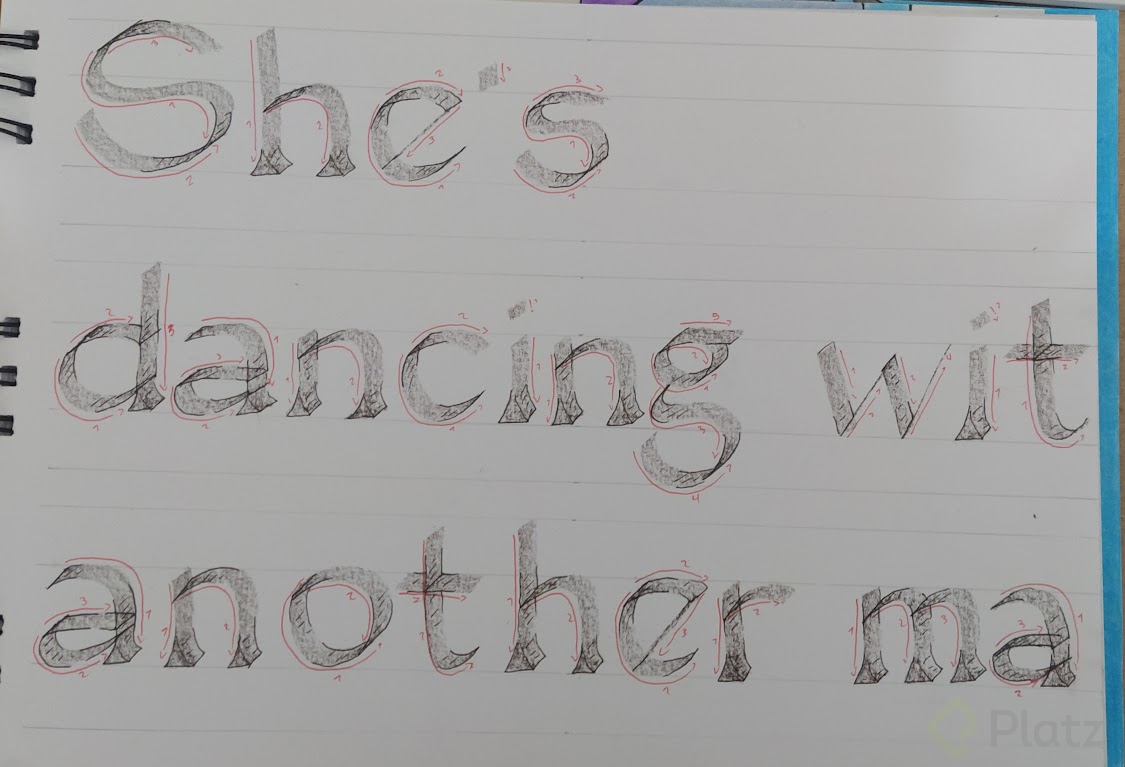 She's
dancing wit
another ma
Platz